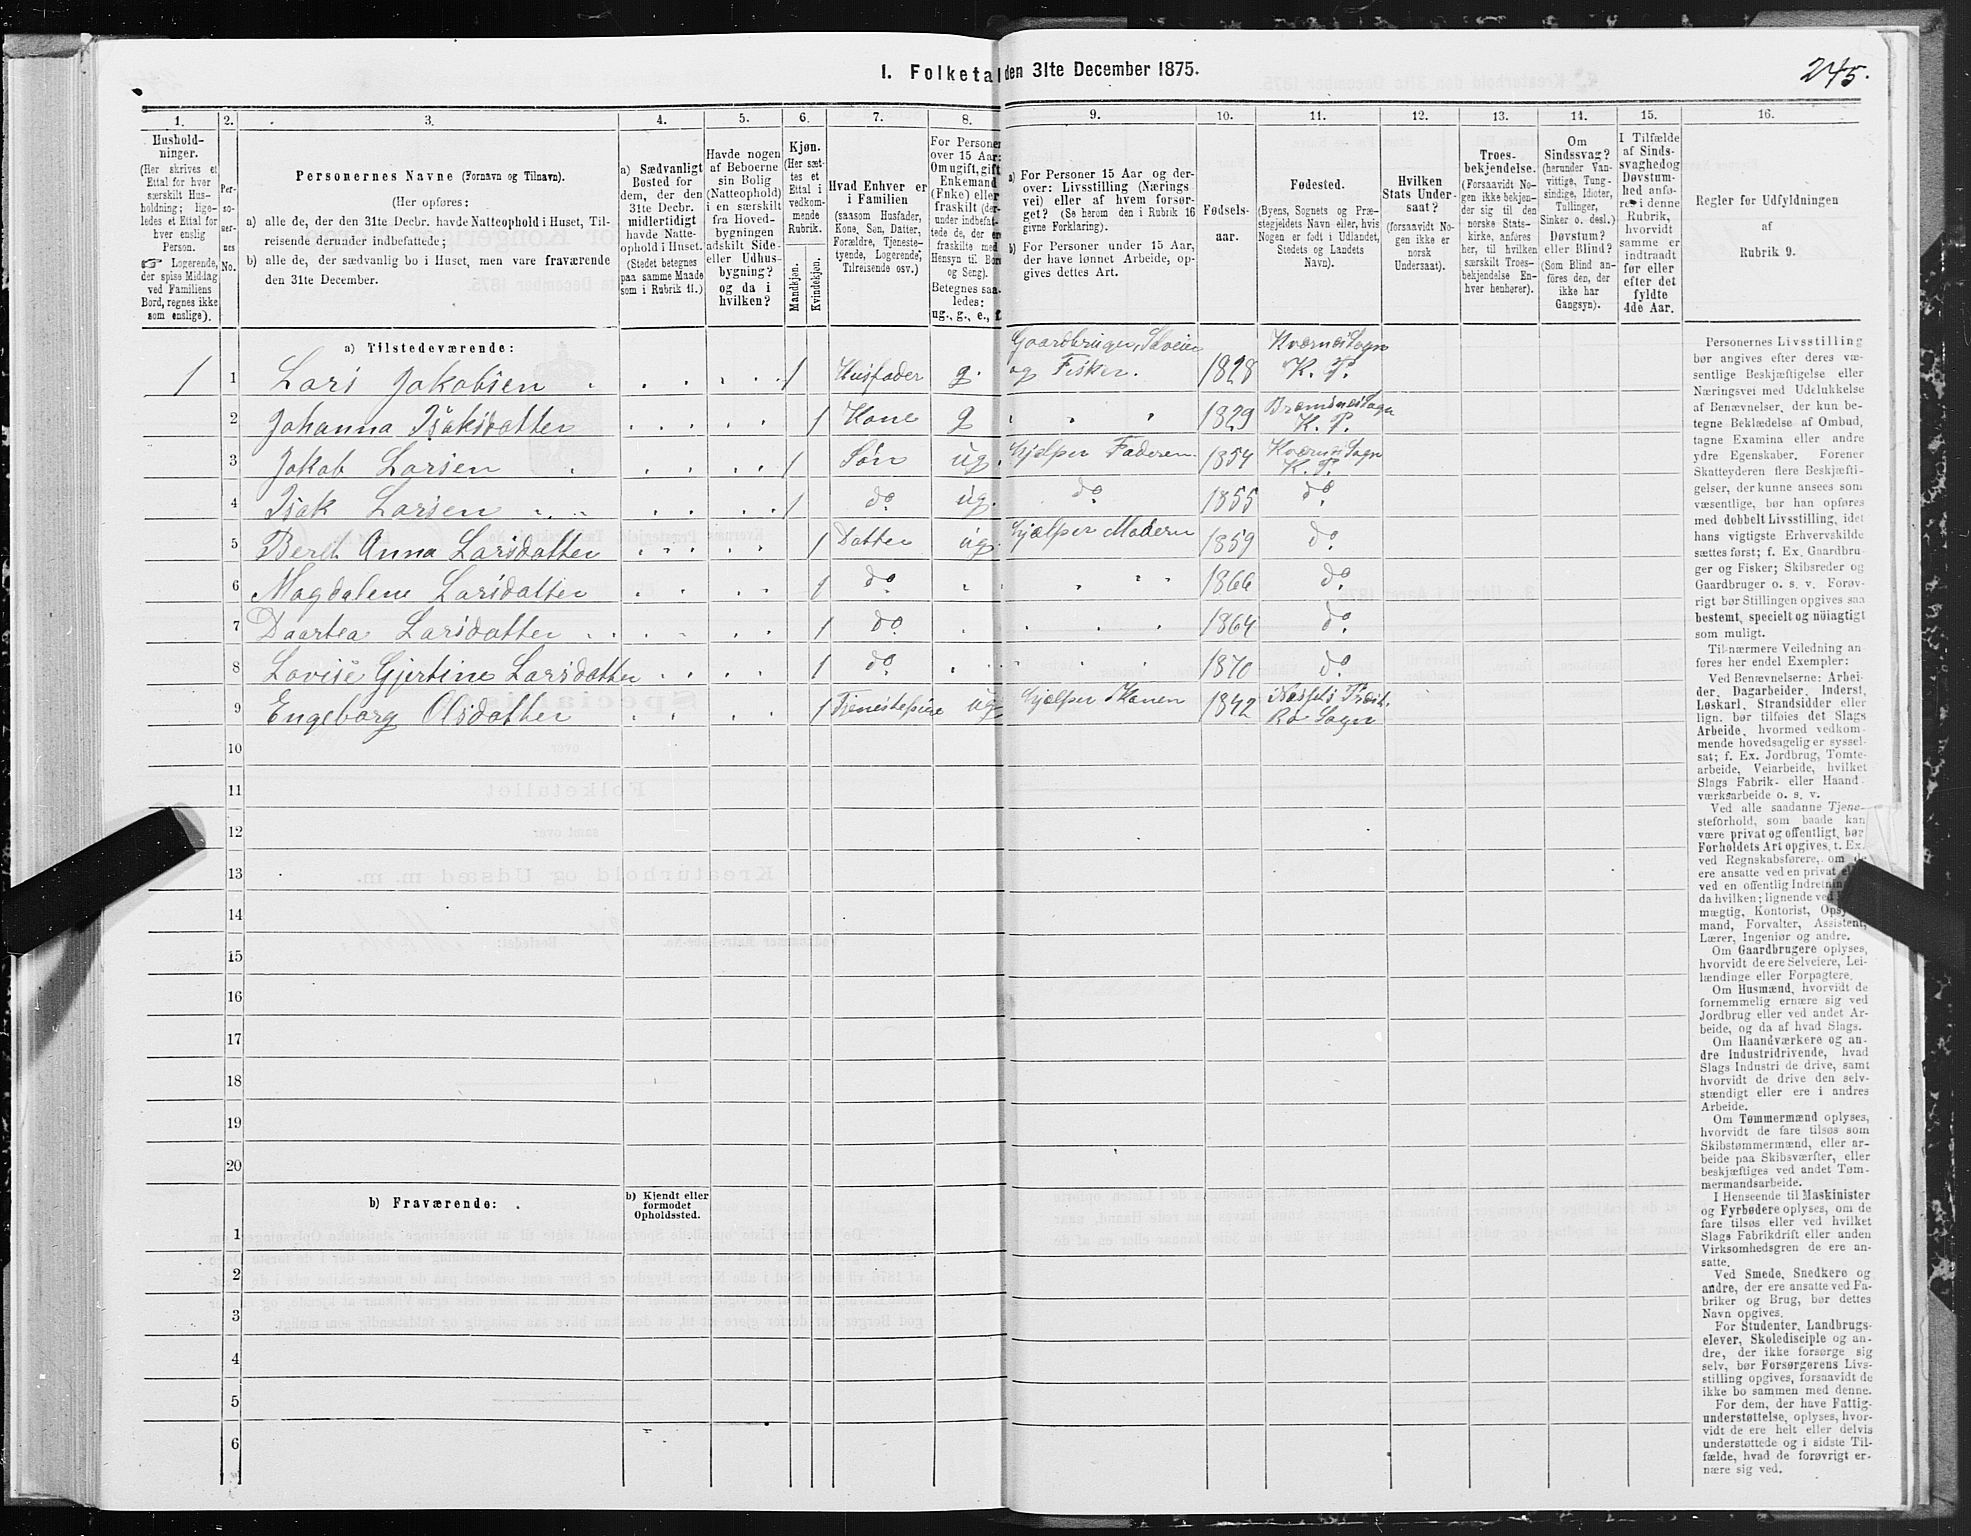 I. Folketal den 31te December 1875.
245.
1. 2. 3. 4. 5. 6. 7. 8. 9. 10. 11. 12. 13. 14. 15. 16.
Hushold-
ninger.
(Her skrives et
Ettal for hver
særskilt Hus-
holdning; lige-
ledes et Ettal for
hver enslig
Person.
☞ Logerende,
der spise Middag
ved Familiens
Bord, regnes ikke
som enslige).
Per-
so-
ner-
nes
No.
Personernes Navne (Fornavn og Tilnavn).
(Her opføres:
a) alle de, der den 31te Decbr. havde Natteophold i Huset, Til-
reisende derunder indbefattede;
b) alle de, der sædvanlig bo i Huset, men vare fraværende
den 31te December.
a) Sædvanligt
Bosted for
dem, der den
31te Decbr.
midlertidigt
havde Natte-
ophold i Huset.
(Stedet betegnes
paa samme Maade
som i Rubrik 11.)
Havde nogen
af Beboerne
sin Bolig
(Natteophold)
i en særskilt
fra Hoved-
bygningen
adskilt Side-
eller Udhus-
bygning?
og da i
hvilken?
Kjøn.
(Her sæt-
tes et
Ettal i
vedkom-
mende
Rubrik.
Mandkjøn.
Kvindekjøn.
Hvad Enhver er
i Familien
(saasom Husfader,
Kone, Søn, Datter,
Forældre, Tjeneste-
tyende, Logerende,
Tilreisende osv.)
For Personer
over 15 Aar:
Om ugift, gift,
Enkemand
(Enke) eller
fraskilt (der-
under indbefat-
tede de, der ere
fraskilte med
Hensyn til Bord
og Seng).
Betegnes saa-
ledes:
ug., g., e., f.
a) For Personer 15 Aar og der-
over: Livsstilling (Nærings-
vei) eller af hvem forsør-
get? (Se herom den i Rubrik 16
givne Forklaring).
b) For Personer under 15 Aar,
der have lønnet Arbeide, op-
gives dettes Art.
Fødsels-
aar.
Fødested.
(Byens, Sognets og Præ-
stegjeldets Navn eller, hvis
Nogen er født i Udlandet,
Stedets og Landets
Navn).
Hvilken
Stats Under-
saat?
(forsaavidt No-
gen ikke er
norsk
Undersaat).
Troes-
bekjendelse.
(Forsaavidt No-
gen ikke bekjen-
der sig til den
norske Stats-
kirke, anføres
her, til hvilken
særskilt Troes-
bekjendelse En-
hver henhører).
Om
Sindssvag?
(herunder Van-
vittige, Tung-
sindige, Idioter,
Tullinger,
Sinker o. desl.)
Døvstum?
eller Blind?
(Som Blind an-
føres den, der
ikke har
Gangsyn).
I Tilfælde
af Sinds-
svaghed og
Døvstum-
hed anfø-
res i denne
Rubrik,
hvorvidt
samme er
indtraadt
før eller
efter det
fyldte
4de Aar.
Regler for Udfyldningen
af
Rubrik 9.
a) Tilstedeværende:
1 1 Lars Jakobsen 1 Husfader g. Gaardbruger, Selveier og Fisker. 1828 Kværnes Sogn K. P.
2 Johanna Isaksdatter 1 Kone g 1829 Bremsnes Sogn K. P.
3 Jakob Larsen 1 Søn ug. hjelper Faderen 1854 Kværnes Sogn K. P.
4 Isak Larsen 1 do ug. do 1855 do
5 Berit Anna Larsdatter 1 Datter ug. hjælper Moderen 1859 do.
6 Magdalene Larsdatter 1 do. 1866 do.
7 Daartea Larsdatter 1 do. 1864 do.
8 Lovise Gjertine Larsdatter 1 do. 1870 do.
9 Engeborg Olsdatter 1 Tjenestepige ug. hjælper Konen 1842 Nessets Præst. Rø Sogn
10
11
12
13
14
15
16
17
18
19
20
b) Fraværende:
b) Kjendt eller
formodet
Opholdssted.
1
2
3
4
5
6
Personernes Livsstilling
bør angives efter deres væ-
sentlige Beskjæftigelse eller
Næringsvei med Udelukkelse
af Benævnelser, der kun be-
tegne Beklædelse af Ombud,
tagne Examina eller andre
ydre Egenskaber. Forener
Skatteyderen flere Beskjæfti-
gelser, der kunne ansees som
væsentlige, bør han opføres
med dobbelt Livsstilling, idet
hans vigtigste Erhvervskilde
sættes først; f. Ex. Gaardbru-
ger og Fisker; Skibsreder og
Gaardbruger o. s. v. Forøv-
rigt bør Stillingen opgives saa
bestemt, specielt og nöiagtigt
som muligt.
Til nærmere Veiledning an-
føres her endel Exempler:
Ved Benævnelserne: Arbei-
der, Dagarbeider, Inderst,
Løskarl, Strandsidder eller
lign. bør tilføies det Slags
Arbeide, hvormed vedkom-
mende hovedsagelig er syssel-
sat; f. Ex. Jordbrug, Tomte-
arbeide, Veiarbeide, hvilket
Slags Fabrik- eller Haand-
værksarbeide o. s. v.
Ved alle saadanne Tjene-
steforhold, som baade kan
være privat og offentligt, bør
Forholdets Art opgives, t. Ex.
ved Regnskabsførere, om de
ere ansatte ved en privat
ved en offentlig Indretning
da hvilken; lignende ved
mægtig, Kontorist,
mand, Forvalter, Assistent,
Lærer, Ingeniør og andre.
Om Gaardbrugere oplyses,
hvorvidt de ere Selveiere, Lei-
lændinge eller Forpagtere.
Om Husmænd, hvorvidt de
fornemmelig ernære sig ved
Jordbrug eller ved andet Ar-
beide, og da af hvad Slags.
Om Haandværkere og an-
dre Industridrivende, hvad
Slags Industri de drive, samt
hvorvidt de drive den selv-
stændigt eller ere i andres
Arbeide.
Om Tømmermænd oplyses,
hvorvidt de fare tilsøs som
Skibstømmermænd, eller ar-
beide paa Skibsværfter, eller
beskjæftiges ved andet Tøm-
mermandsarbeide.
I Henseende til Maskinister
og Fyrbødere oplyses, om de
fare tilsøs eller ved hvilket
Slags Fabrikdrift eller anden
Virksomhedsgren de ere an-
satte.
Ved Smede, Snedkere og
andre, der ere ansatte ved Fa-
briker og Brug, bør dettes
Navn opgives.
For Studenter, Landbrugs-
elever, Skoledisciple og an-
dre, der ikke forsørge sig
selv, bør Forsørgerens Livs-
stilling opgives, forsaavidt de
ikke bo sammen med denne.
For dem, der have Fattig-
understøttelse, oplyses, hvor-
vidt de ere helt eller delvis
understøttede og i sidste Til-
fælde, hvad de forøvrigt er-
nære sig ved.